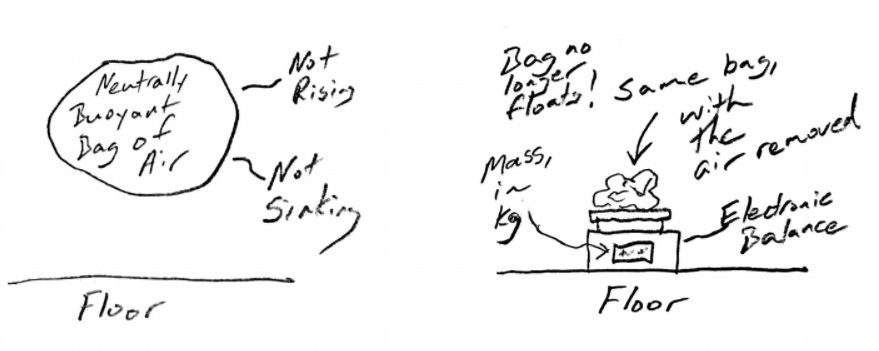 Neutrally
Buoyant
Bag of
Air
Not
Rising
Not
Sinking
Floor
Bag no
longer
floats!
Same bag,
with
the
air removed
Mass,
in
kg
Electronic
Balance
Floor